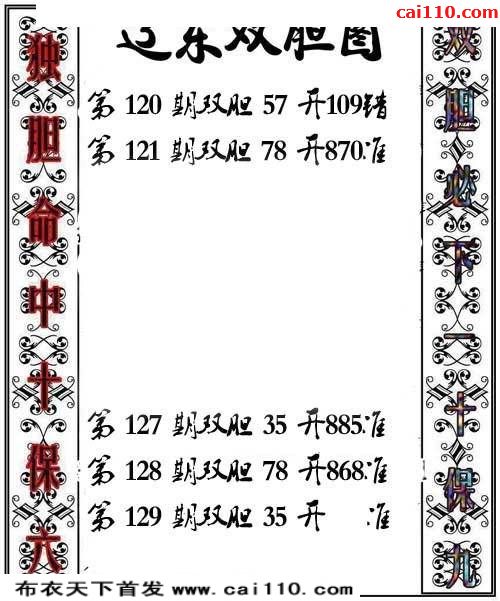 cai110.com
辽东双胆图
独胆命中十保六
第 120 期双胆 57 开109错
第 121 期双胆 78 开870准
第 127 期双胆 35 开885准
第 128 期双胆 78 开868准
第 129 期双胆 35 开 准
双胆必下一十保九
布衣天下首发 www.cai110.com